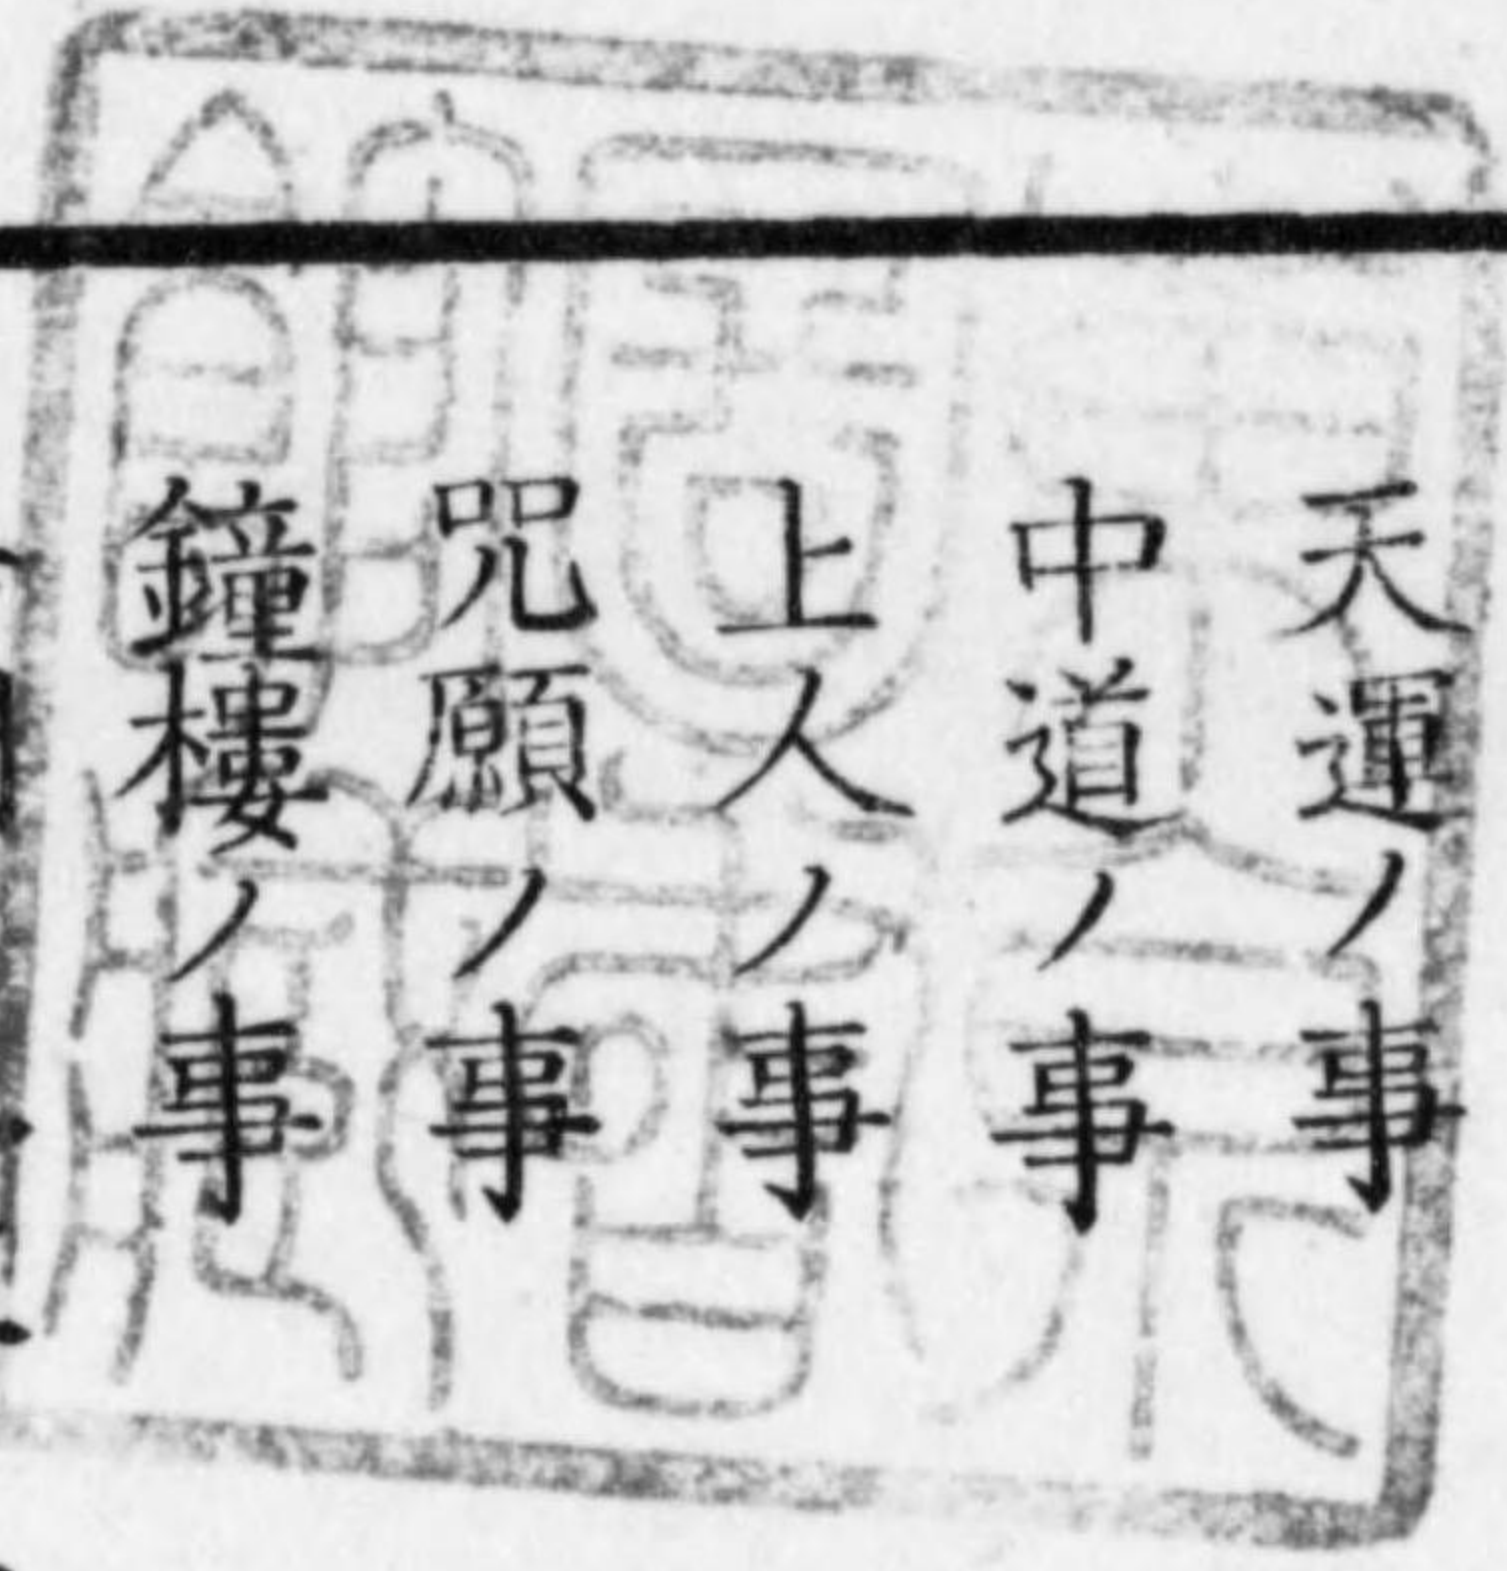 天運ノ事
中道ノ事
上人ノ事
咒願ノ事
鐘樓ノ事